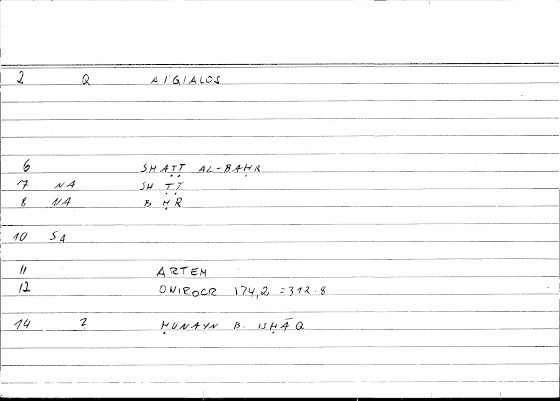 2 Q AIGIALOS
6 SHAṬṬ AL-BAḤR
7 NA SH ṬṬ
8 NA B Ḥ R
10 SA
11 ARTEM
12 ONIROCR 174,2 = 312.8
14 2 ḤUNAYN B. ISḤĀQ